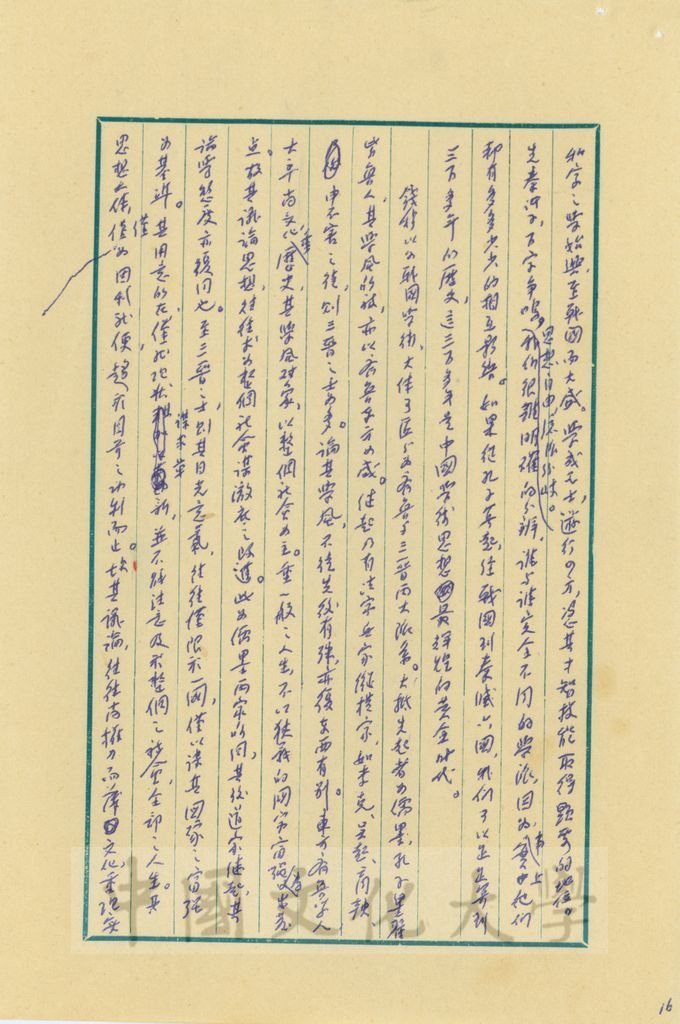 私家之學始興，至戰國而大盛。學成之士，遊行四方，憑其才智技能取得顯要的地位。
先秦諸子，百家爭鳴，思想自由，派別分歧。我們很難明確的分辨，誰與誰完全不同的學派，因為事實上他們
都有多多少少的相互影響。如果從孔子算起，經戰國到秦滅六國，我們可以出算到
三百多年的歷史，這三百多年是中國學術思想最輝煌的黃金時代。
錢穆以為戰國學術，大體可區分為齊魯與三晉兩大派系。大抵先起者為儒墨，孔子墨翟
皆魯人，其學風所被，亦以齊魯東方為盛。繼起乃有法家兵家縱橫家，如李克、吳起、商鞅
申不害之徒，則三晉之士為多。論其學風，不徒先後有殊，亦復東西有別。東方齊魯學人
大率尚文化，重歷史，其學風對象，以整個社會為主。重一般之人生，不以狹義的國家富強為出發
點。故其議論思想，往往求為整個社會謀澈底之改進。此為儒墨兩家所同，其後道家繼起，其
論學態度亦復同也。至三晉之士，則其目光意氣，往往僅限於一國，僅以謀其國家之富強
為基準。其用意所在，僅就現狀謀求革新，並不能注意及於整個之社會，全部之人生。其
思想上，僅僅為因利就便，趨於目前之功利而止。故其議論，往往尚權力而薄文化，重現實
16
中國文化大學